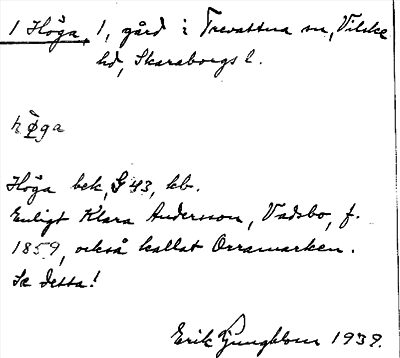 1 Höga, 1, gård i Trevattna sn, Vilske
hd, Skaraborgs l.
hø̀ga
Höga bek, G 43, kb.
Enligt Klara Andersson, Vadsbo, f.
1859, också kallat Orramarken.
Se detta!
Erik Ljungblom 1939.